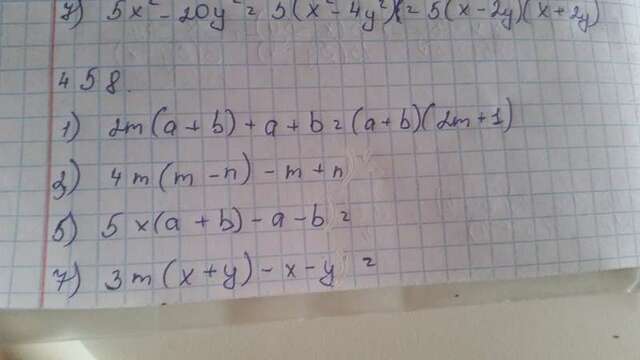 7) 5x² - 20y² = 5(x² - 4y²) = 5(x - 2y)(x + 2y)
458.
1) 2m(a + b) + a + b = (a + b)(2m + 1)
3) 4m(m - n) - m + n
5) 5x(a + b) - a - b =
7) 3m(x + y) - x - y =